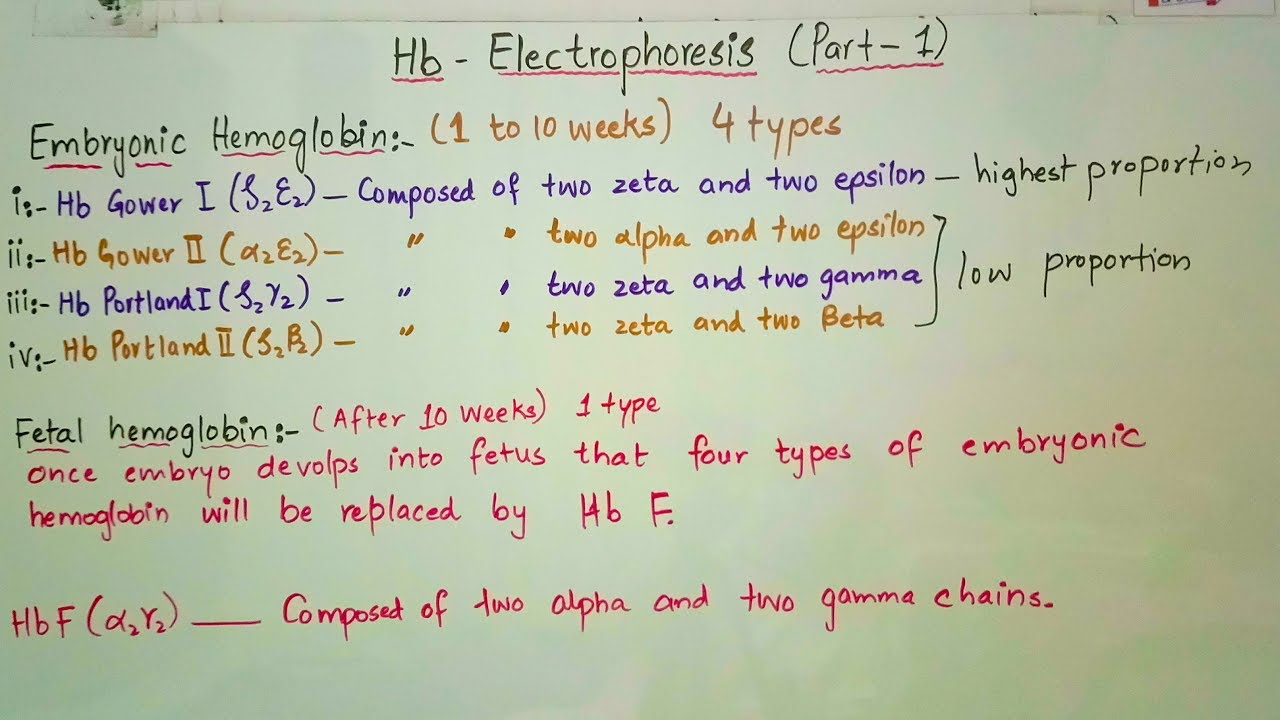 Hb - Electrophoresis (Part-1)
Embryonic Hemoglobin:- (1 to 10 weeks) 4 types
i:- Hb Gower I (ζ₂ε₂) – Composed of two zeta and two epsilon – highest proportion
ii:- Hb Gower II (α₂ε₂) – " " two alpha and two epsilon
iii:- Hb Portland I (ζ₂γ₂) – " " two zeta and two gamma
low proportion
iv:- Hb Portland II (ζ₂β₂) – " " two zeta and two Beta
Fetal hemoglobin:- (After 10 weeks) 1 type
once embryo devolps into fetus that four types of embryonic
hemoglobin will be replaced by Hb F.
HbF (α₂γ₂) — Composed of two alpha and two gamma chains.